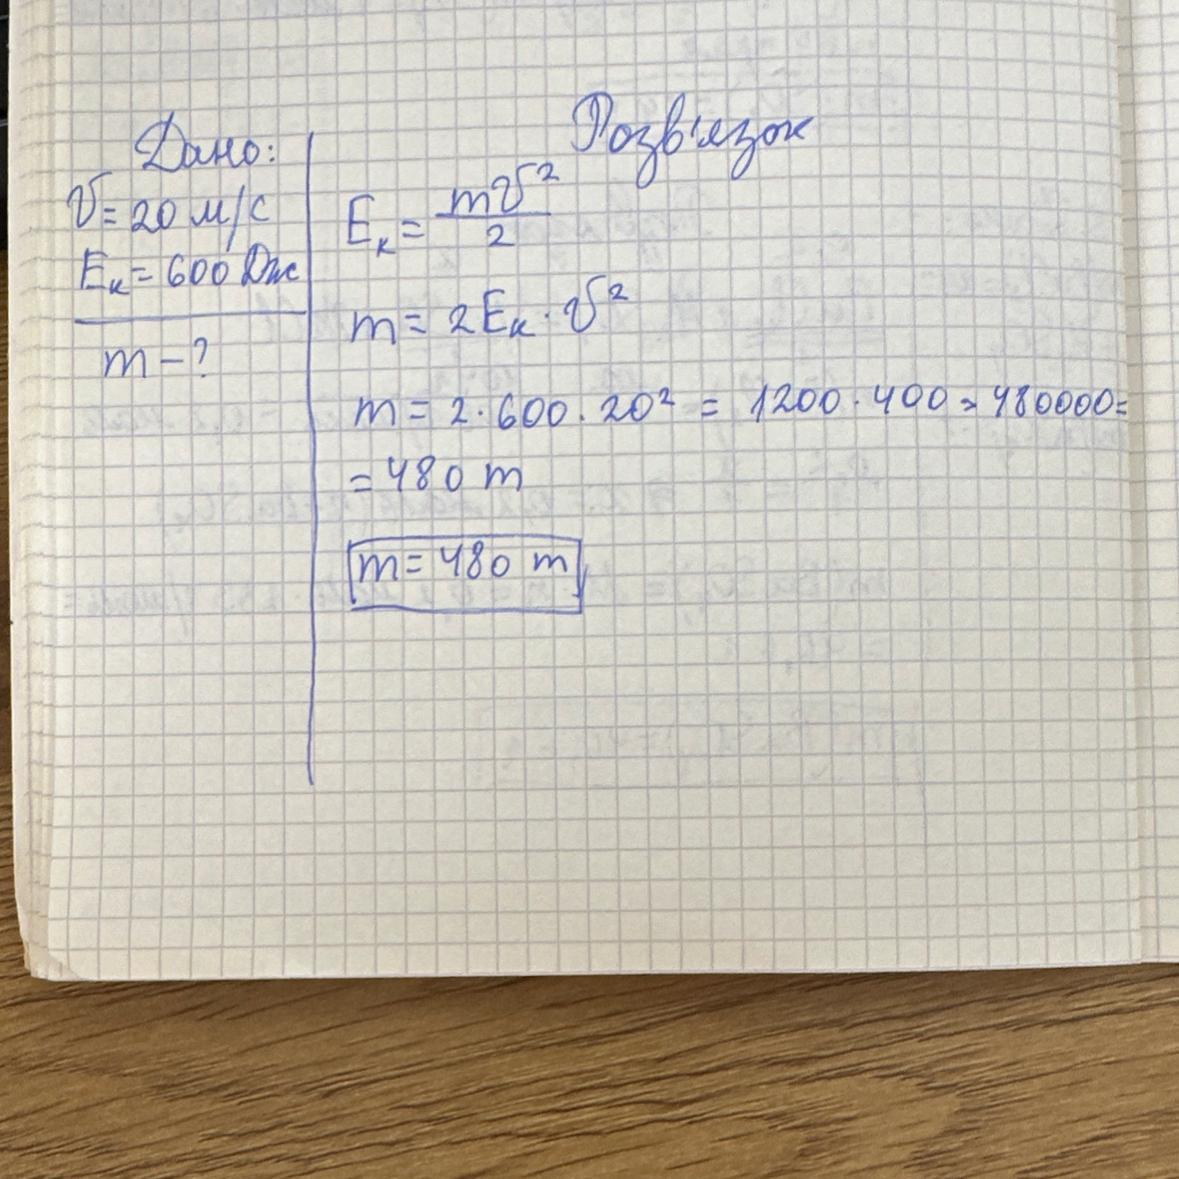 Дано:
V = 20 м/с
Eк = 600 Дж
m - ?
Розв'язок
Eк = mV²/2
m = 2Eк · V²
m = 2 · 600 · 20² = 1200 · 400 = 480000 =
= 480 т
m = 480 т